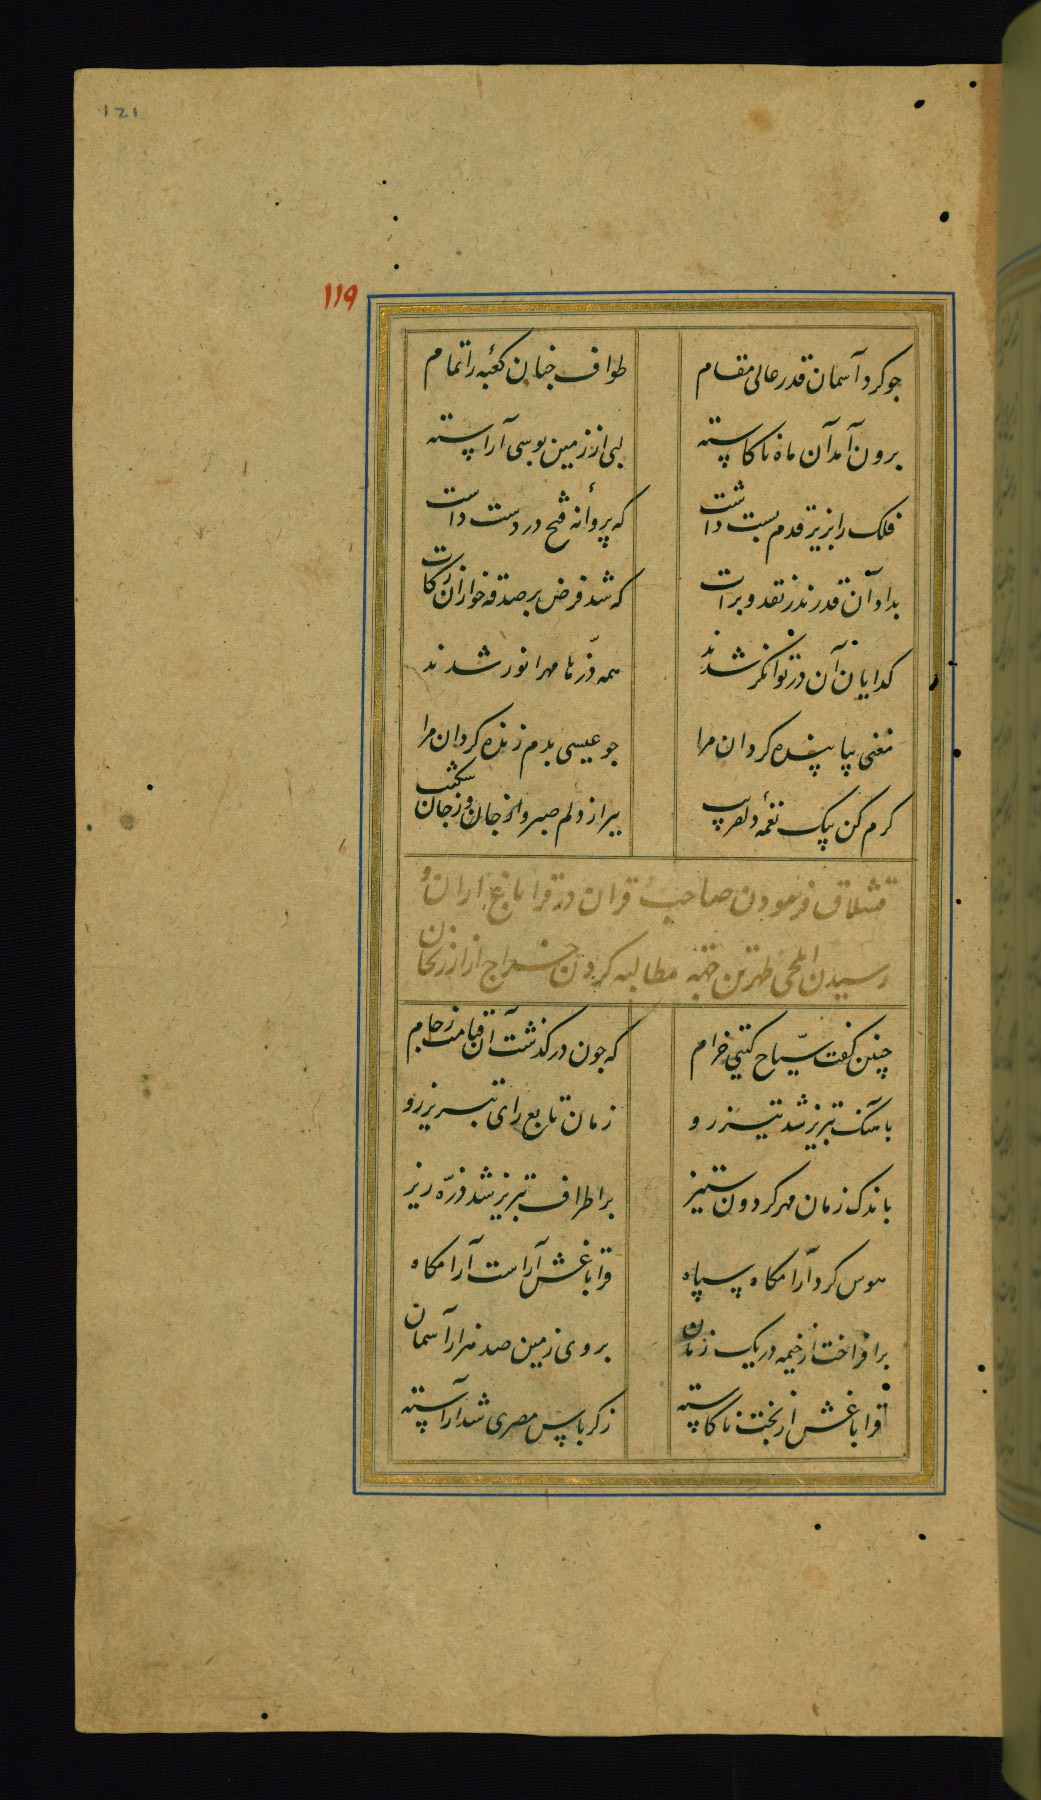 ۱۲۱
۱۱۹
چو کرد آسمان قدر عالی مقام طواف چنان کعبه را تمام
برون آمد آن ماه ناکاسته لبی از زمین بوسی آراسته
فلک را بزیر قدم پست داشت که پروانه فتح در دست داشت
بداد آن قدر نذر نقد و برات که شد فرض بر صدقه خواران زکات
کدایان آن در توانکر شدند همه ذرها مهر انور شدند
مغنی بیا بنده کردان مرا چو عیسی بدم زنده کردان مرا
کرم کن بیک نغمه دلفریب ببر از دلم صبر و از جان شکیب
قشلاق فرمودن صاحب قران در قراباغ اران و
رسیدن ایلچی طهرتن جهته مطالبه کردن خراج از ارزنجان
چنین کفت سیاح کیتی خرام که چون درکذشت آن قیامت زجام
باهنک تبریز شد تیز رو زمان تابع رای تبریز رو
باندک زمان مهر کردون ستیز بر اطراف تبریز شد ذره ریز
هوس کرد آرامکاه سپاه قراباغش آراست آرامکاه
برافراخت از خیمه در یک زمان بروی زمین صد هزار آسمان
قراباغش از بخت ناکاسته ز کرباس مصری شد آراسته